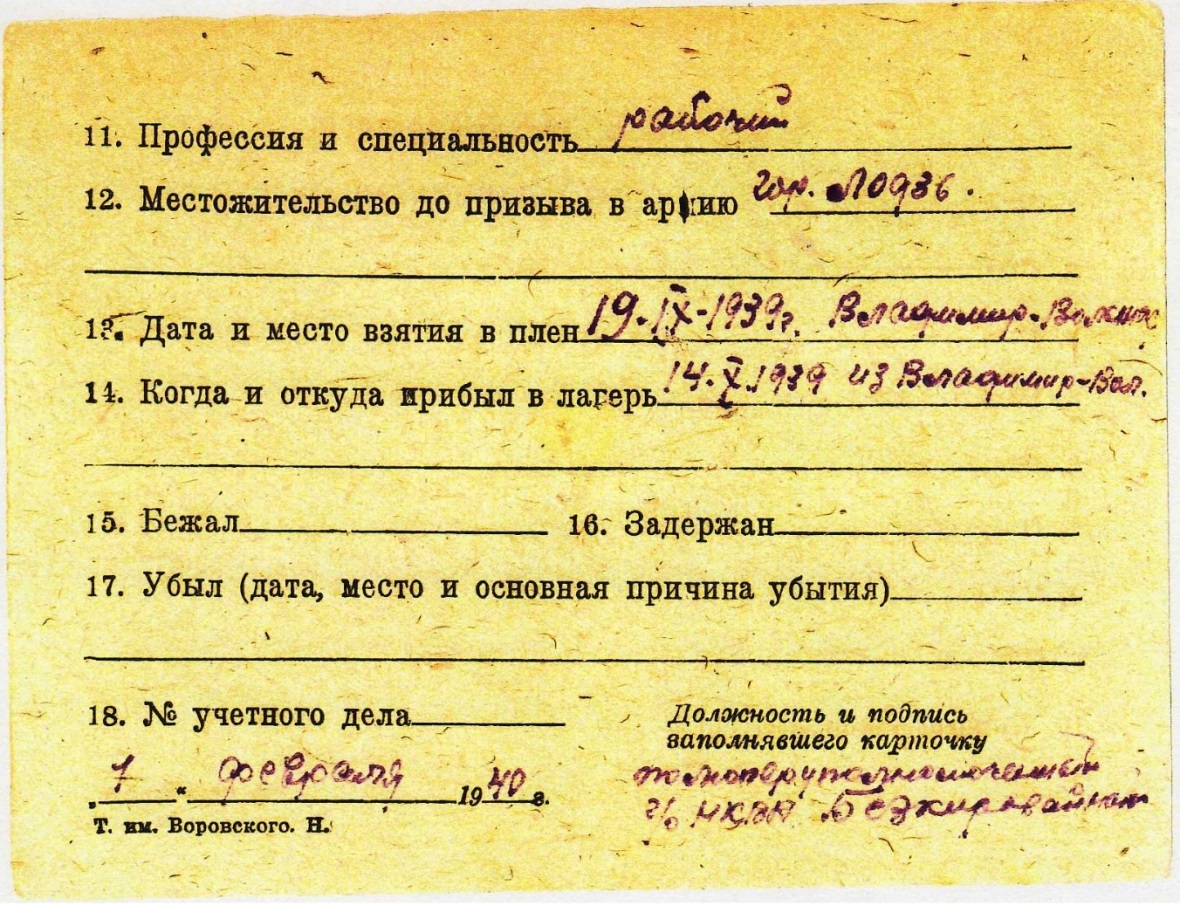 11. Профессия и специальность рабочий
12. Местожительство до призыва в армию гор. Лодзь.
13. Дата и место взятия в плен 19.IX-1939г. Владимир-Волынск
14. Когда и откуда прибыл в лагерь 14.X.1939 из Владимир-Вол.
15. Бежал 16. Задержан
17. Убыл (дата, место и основная причина убытия)
18. № учетного дела
Должность и подпись
заполнявшего карточку
„ 1 “ февраля 1940 г.
Т. им. Воровского. Н.